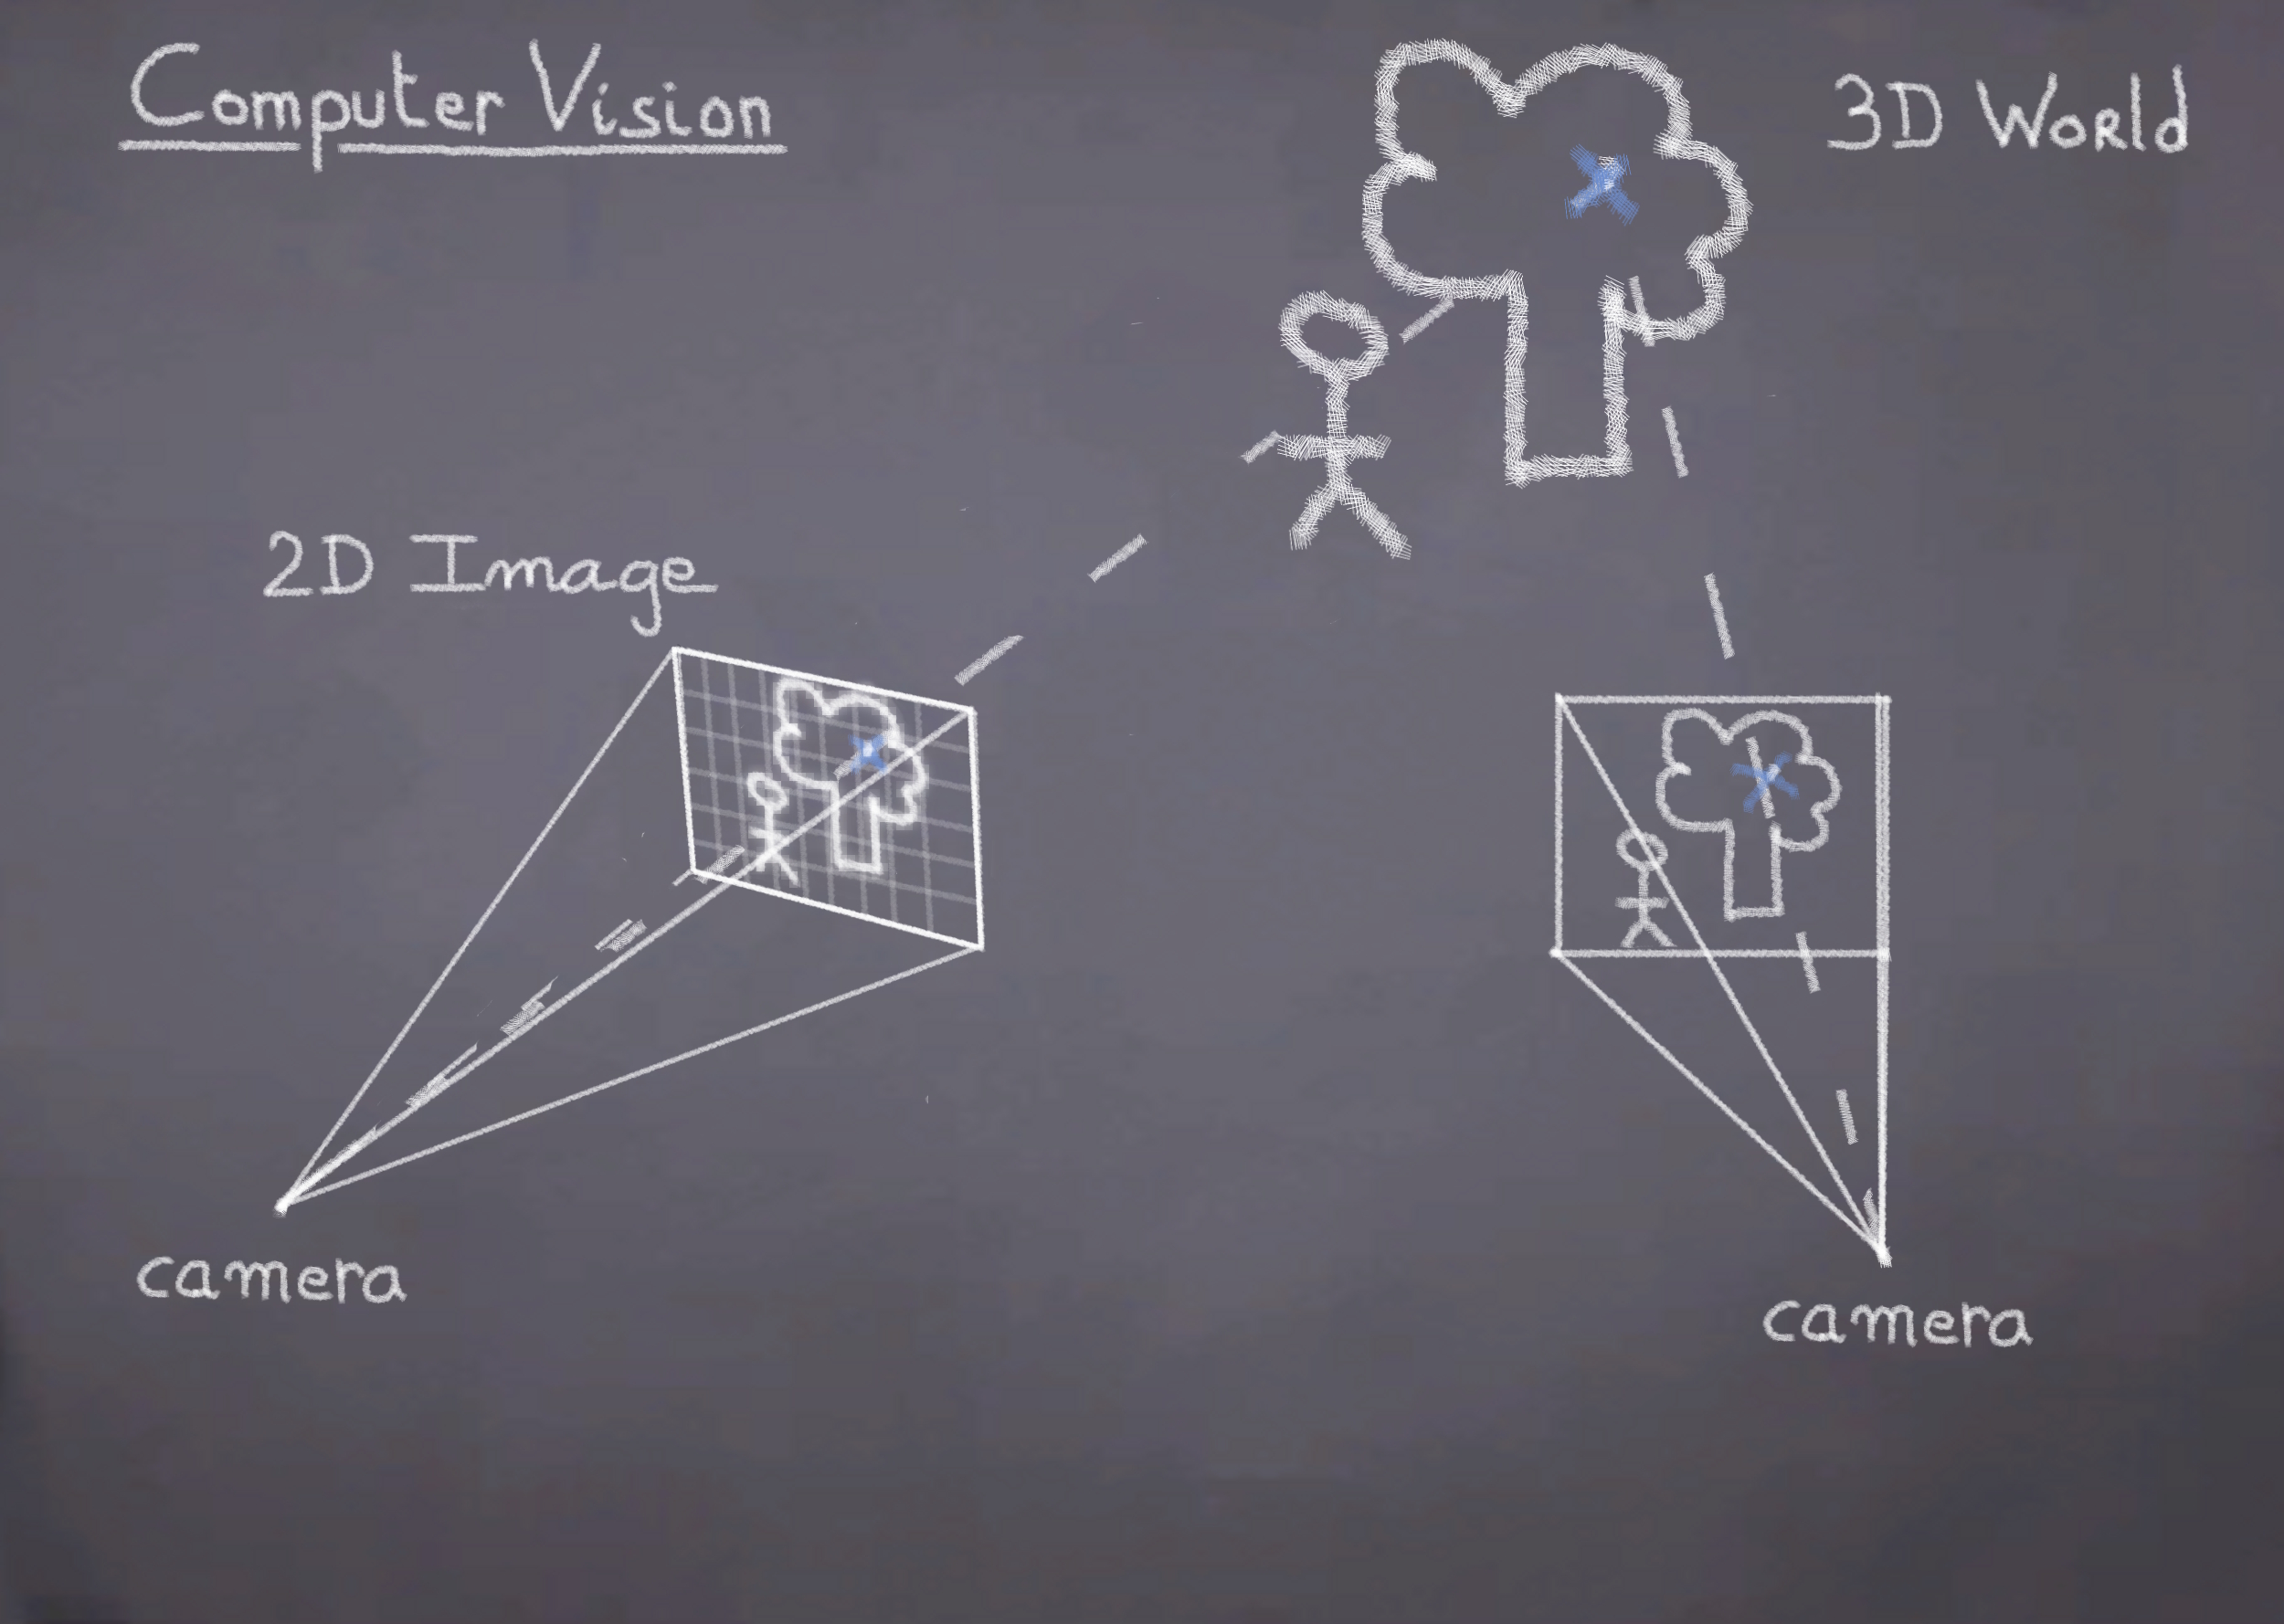 Computer Vision
3D World
2D Image
camera
camera